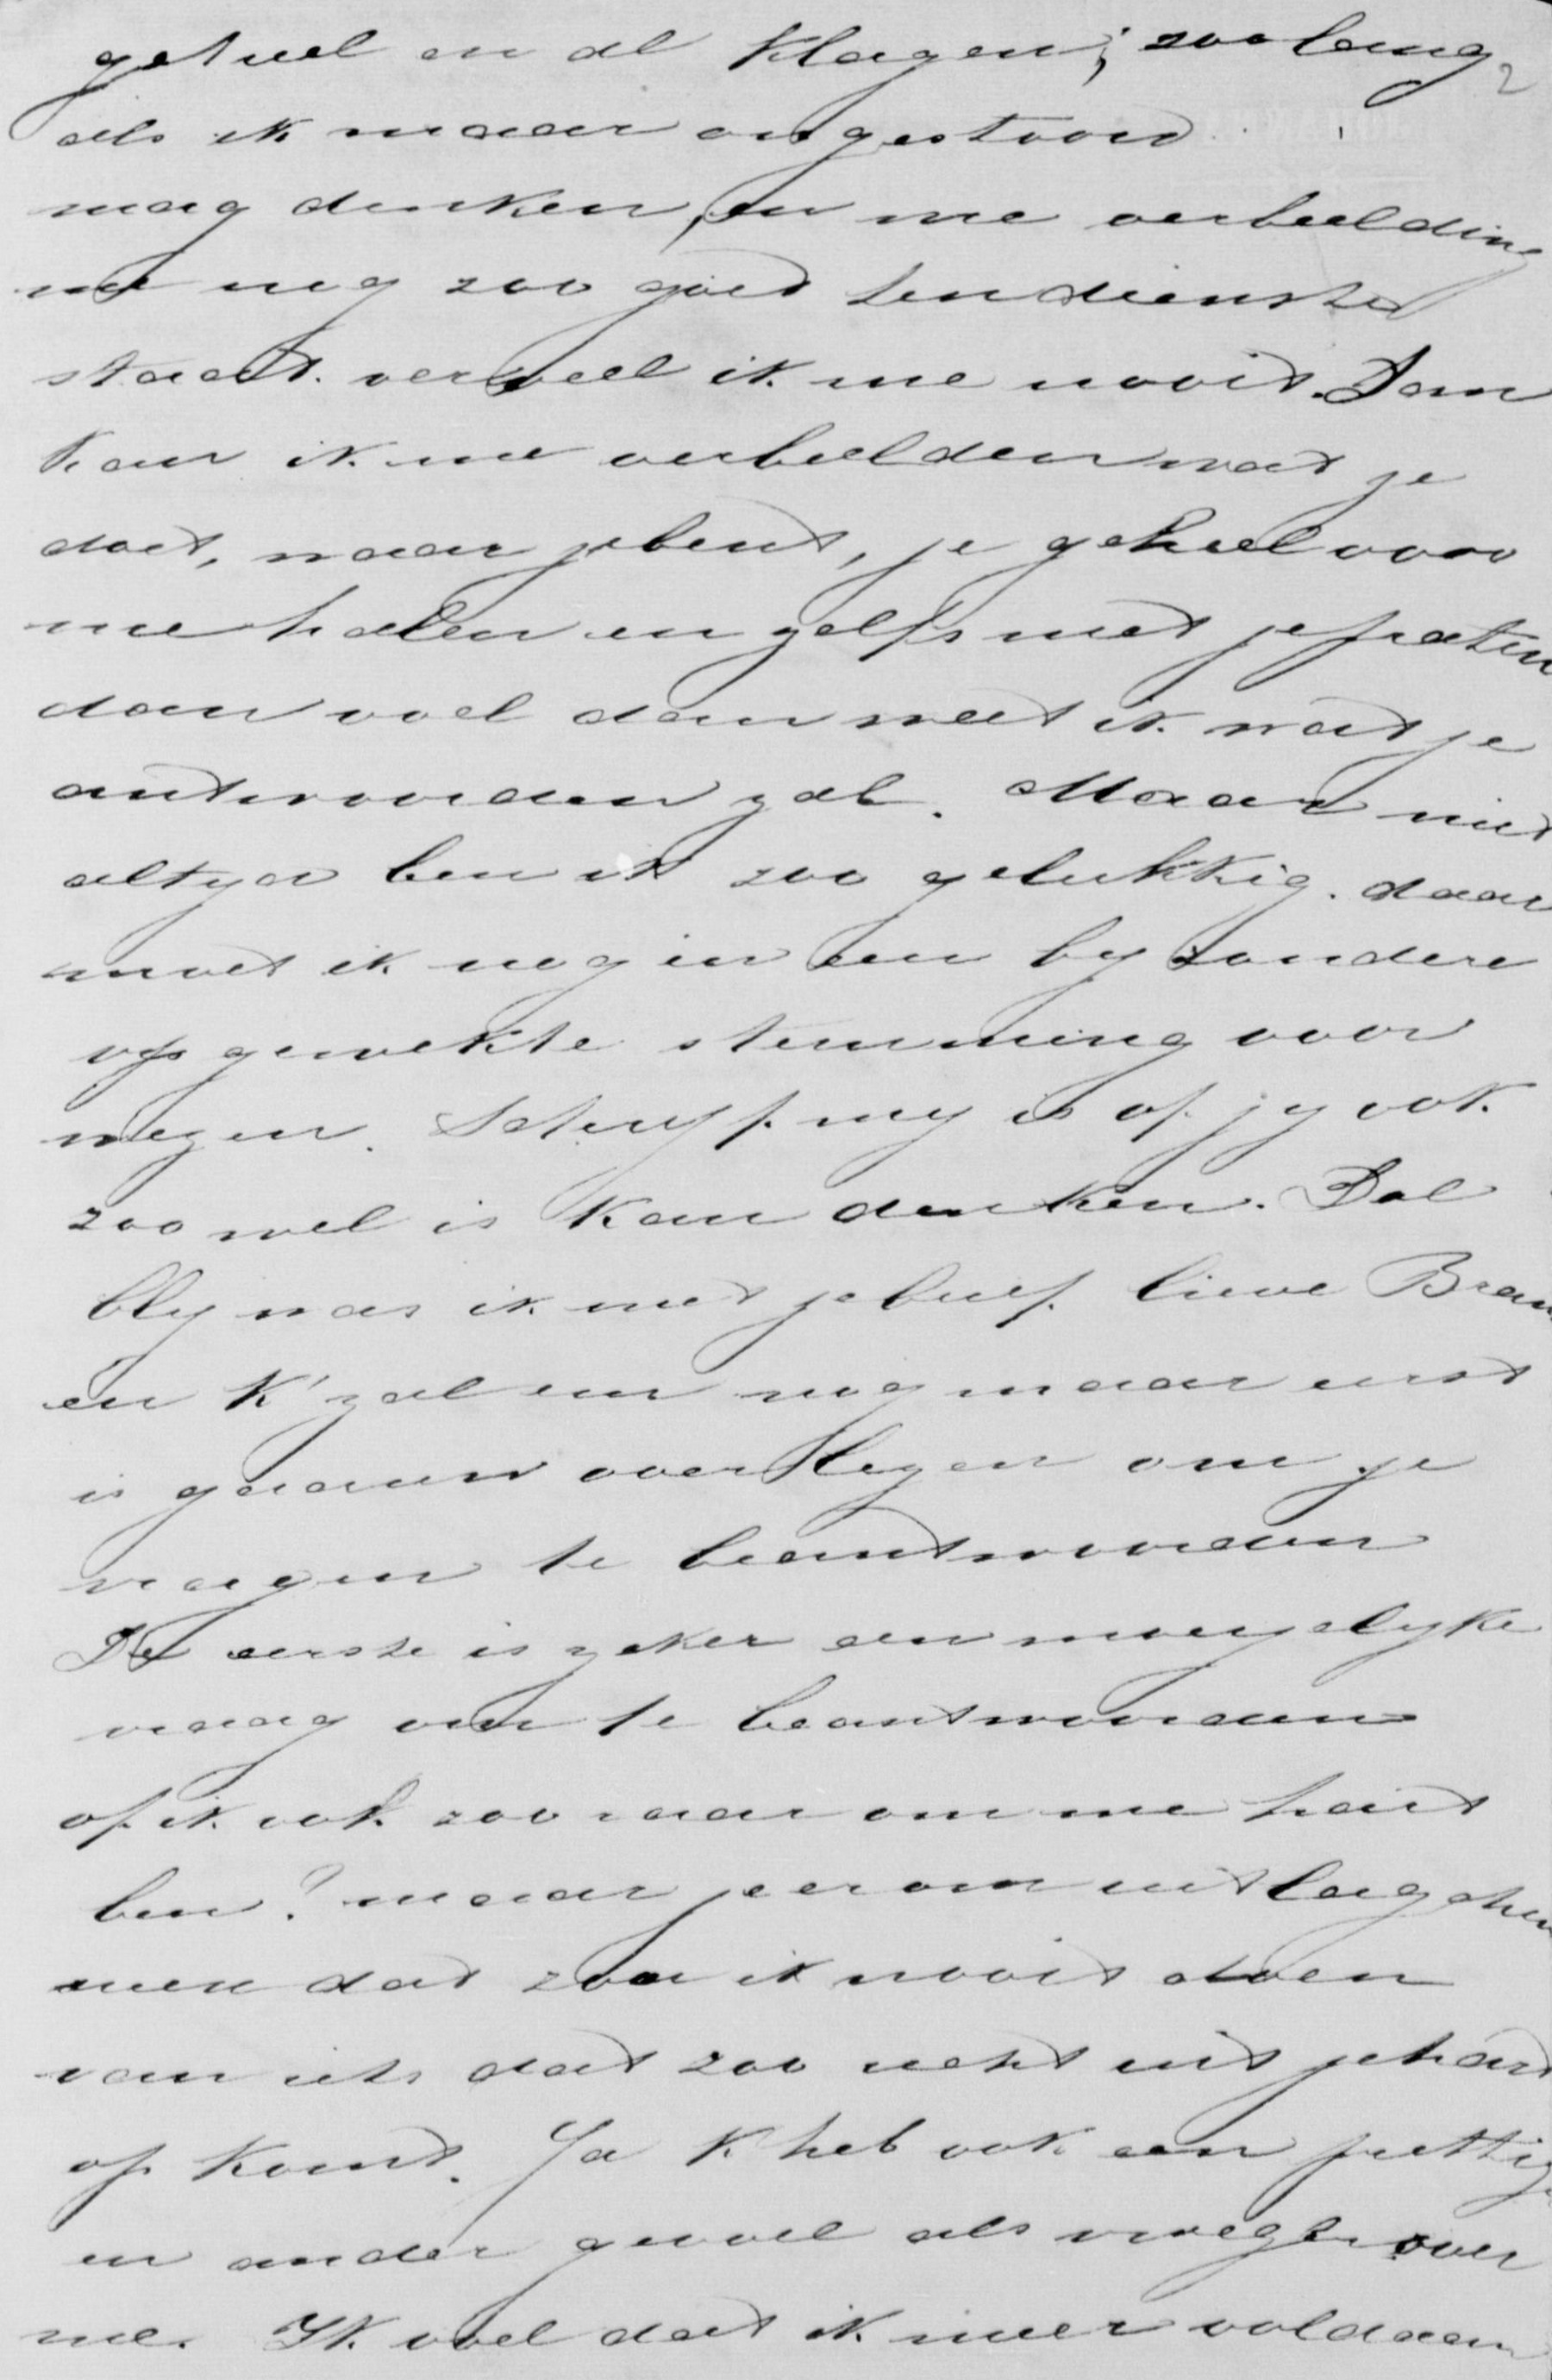 geheel en al klagen; zoolang
als ik maar ongestoord
mag denken, en me verbeelding
me nog zoo goed ten dienste
staat. verveel ik me nooit. Dan
kan ik me verbeelden wat je
doet, waar je bent, je geheel voor
me halen en zelfs met je praten
dan voel dan weet ik wat je
antwoorden zal. Maar niet
altyd ben ik zoo gelukkig. daar
moet ik nog in een byzondere
opgewekte stemming voor
wezen. Schryf my is of jy ook
zoo wel is kan denken. Dol
bly was ik met je brief. lieve Bram
en k' zal em nog maar eerst
is gaauw overleggen om je
vragen te beantwoorden
De eerste is zeker een moeyelyke
vraag om te beantwoorden
of ik ook zoo raar om me hart
ben? maar je er om uitlagchen
neen dat zou ik nooit doen
van iets dat zoo echt uit je hart
op komt. Ja k heb ook een prettig
en ander gevoel als vroeger over
me. Ik voel dat ik meer voldaan